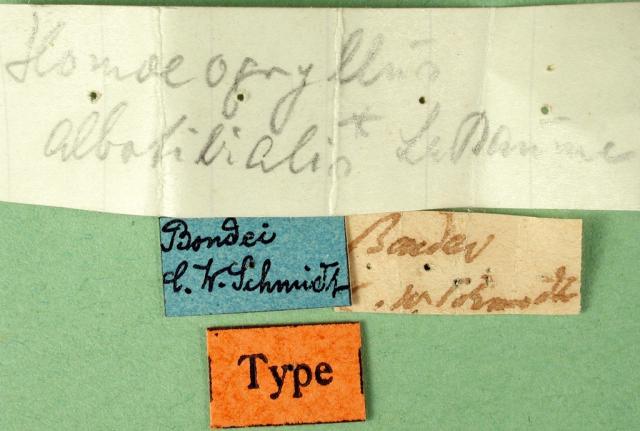 Homoeogryllus
albotibialis + LeBaume
Bondei
C. W. Schmidt
Bondei
C. W. Schmidt
Type